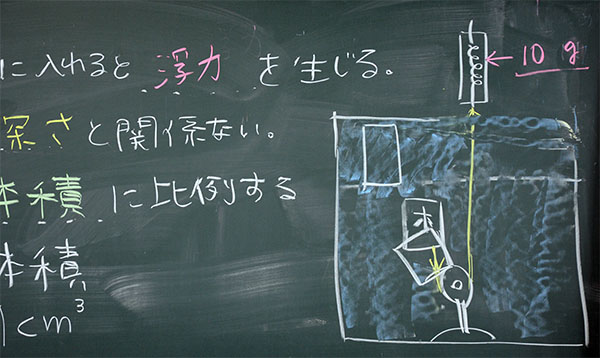 に入れると 浮力 を生じる。
深さと関係ない。
体積に比例する
体積
1cm³
10 g
木